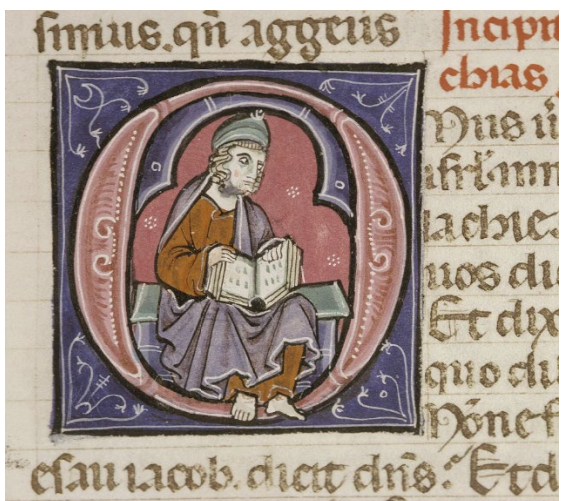 simius. qñ aggeus Incipi
chias
Nus
isrl. in m
lachie.
uos di
Et dix
quo dil
Nõne f
esau iacob. dicit dñs. Et d